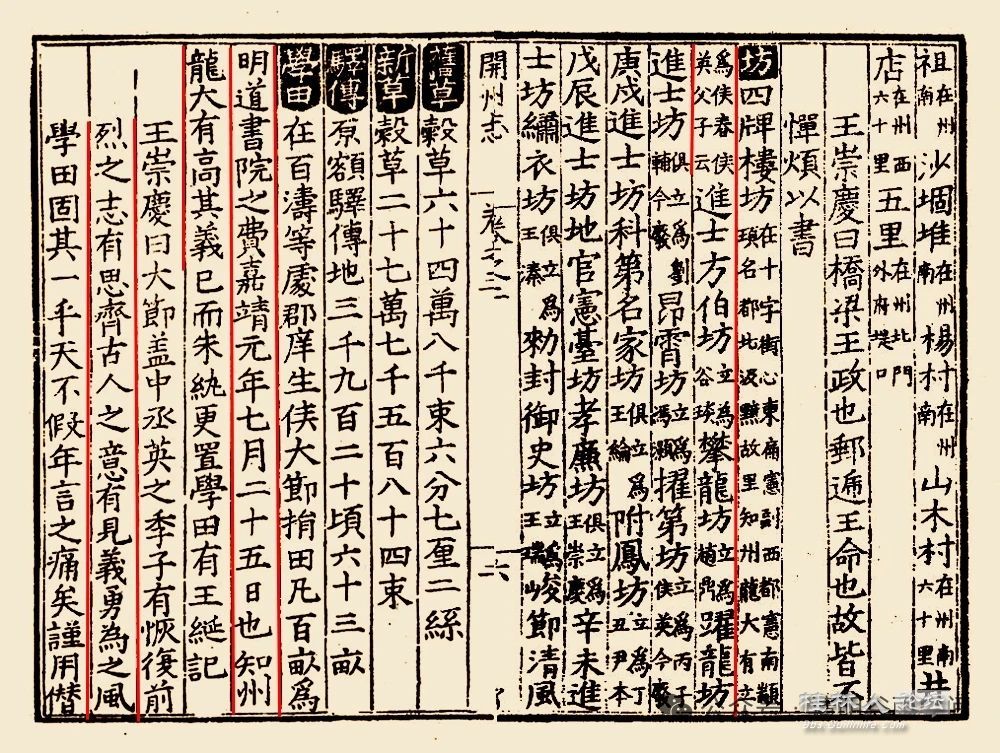 祖在州南沙堌堆在州南楊村在州南山木村在州南六十里井
店在州西六十里五里在州北門外府口
王崇慶曰橋梁王政也郵逓王命也故皆不
憚煩以書
坊四牌樓坊在十字街心東廟憲副西都憲南顓頊名郡北汲黯故里知州龍大有立
為侯春侯英父子云進士方伯坊立為谷琰攀龍坊立為趙鼎躍龍坊
進士坊俱立為劉輔今廢昂霄坊立為馮灝擢第坊立為丙子侯英今廢
庚戌進士坊科第名家坊俱立為王綸附鳳坊立為丁丑尹本
戊辰進士坊地官憲臺坊孝廉坊俱立為王崇慶辛未進
士坊繡衣坊俱立為王溱勑封御史坊立為王瑞峻節清風
開州志 卷之三 十六
舊草榖草六十四萬八千束六分七厘二絲
新草榖草二十七萬七千五百八十四束
驛傳原額驛傳地三千九百二十頃六十三畝
學田在百濤等處郡庠生侯大節捐田凡百畝為
明道書院之費嘉靖元年七月二十五日也知州
龍大有高其義已而朱紈更置學田有王綖記
王崇慶曰大節盖中丞英之季子有恢復前
烈之志有思齊古人之意有見義勇為之風
學田固其一乎天不假年言之痛矣謹用僭
桂林人论坛